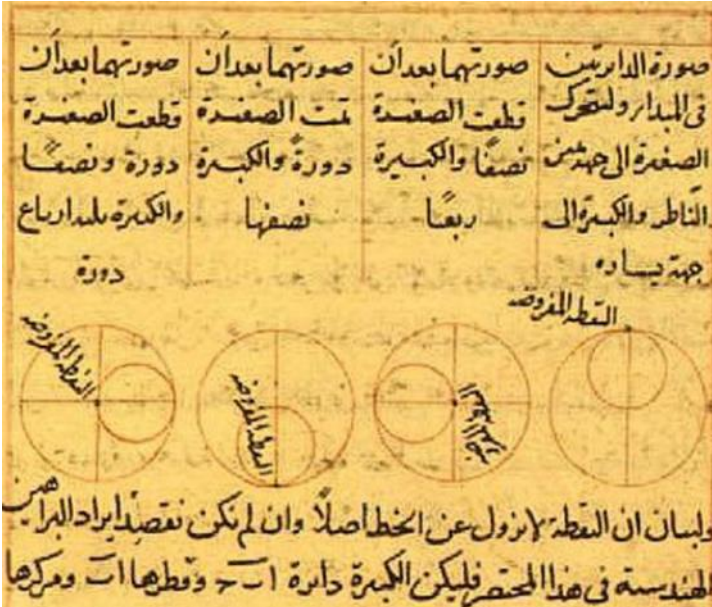 صورة الدايرتين
فى المبدا ولتتحرك
الصغيرة الى جهة يمين
الناظر والكبيرة الى
جهة يساره
صورتهما بعد ان
قطعت الصغيرة
نصفًا والكبيرة
ربعًا
صورتهما بعد ان
تمت الصغيرة
دورةً والكبيرة
نصفها
صورتهما بعد ان
قطعت الصغيرة
دورة ونصفًا
والكبيرة ثلثة ارباع
دورة
النقطة المفروضه
النقطة المفروضه
النقطة المفروضه
النقطة المفروضه
ولبيان ان النقطة لا تزول عن الخط اصلًا وان لم نكن نقصد ايراد البراهين
الهندسية فى هذا المختصر فليكن الكبيرة دائرة ا ب ح وقطرها ا ب ومركزها